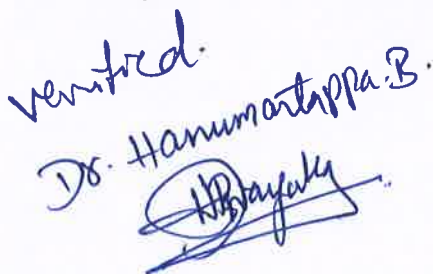 verified.
Dr. Hanumantappa.B.